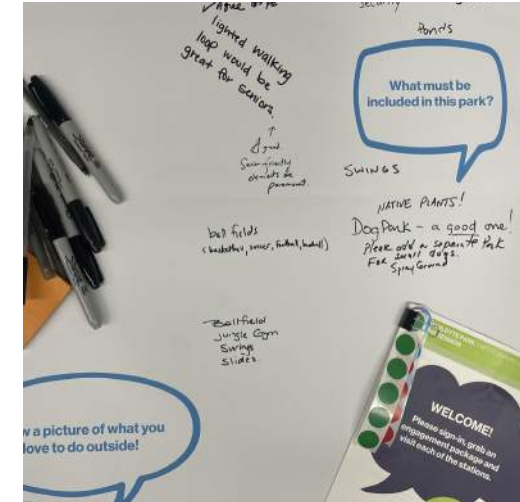 lighted walking
loop would be
great for seniors.
Agreed.
Senior friendly
elements be
paramount.
Ponds
What must be
included in this park?
SWINGS
NATIVE PLANTS!
Dog Park - a good one!
Please add a separate Park
For small dogs.
Spray Ground
ball fields
(basketball, soccer, football, baseball)
Ballfield
Jungle Gym
Swings
Slides
w a picture of what you
love to do outside!
WELCOME!
Please sign-in, grab an
engagement package and
visit each of the stations.